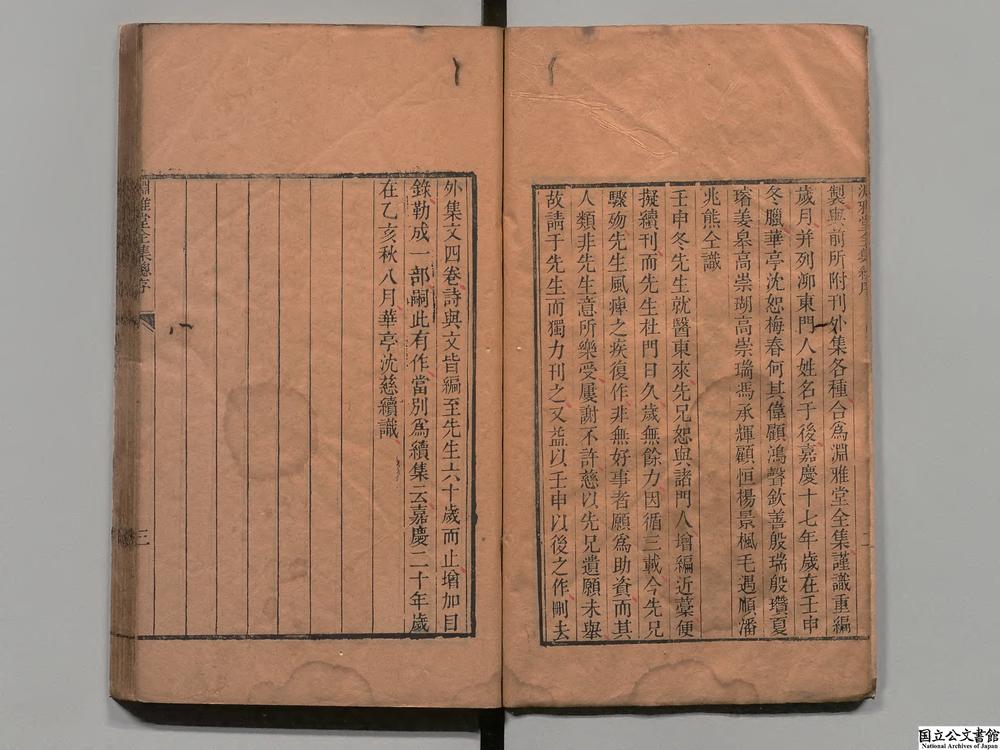 製與前所附刊外集各種合爲淵雅堂全集謹識重編
歲月并列泖東門人姓名于後嘉慶十七年歲在壬申
冬臘華亭沈恕梅春何其偉顧鴻聲欽善殷瑞殷瓚夏
璿姜皋高崇瑚高崇瑞馮承輝顧恒楊景楓毛遇順潘
兆熊仝識
壬申冬先生就醫東來先兄恕與諸門人增編近藁便
擬續刊而先生杜門日久歲無餘力因循三載今先兄
驟歿先生風痺之疾復作非無好事者願爲助資而其
人類非先生意所樂受屢謝不許慈以先兄遺願未舉
故請于先生而獨力刊之又益以壬申以後之作刪去
外集文四卷詩與文皆編至先生六十歲而止增加目
錄勒成一部嗣此有作當別爲續集云嘉慶二十年歲
在乙亥秋八月華亭沈慈續識
淵雅堂全集總序
三
国立公文書館
National Archives of Japan